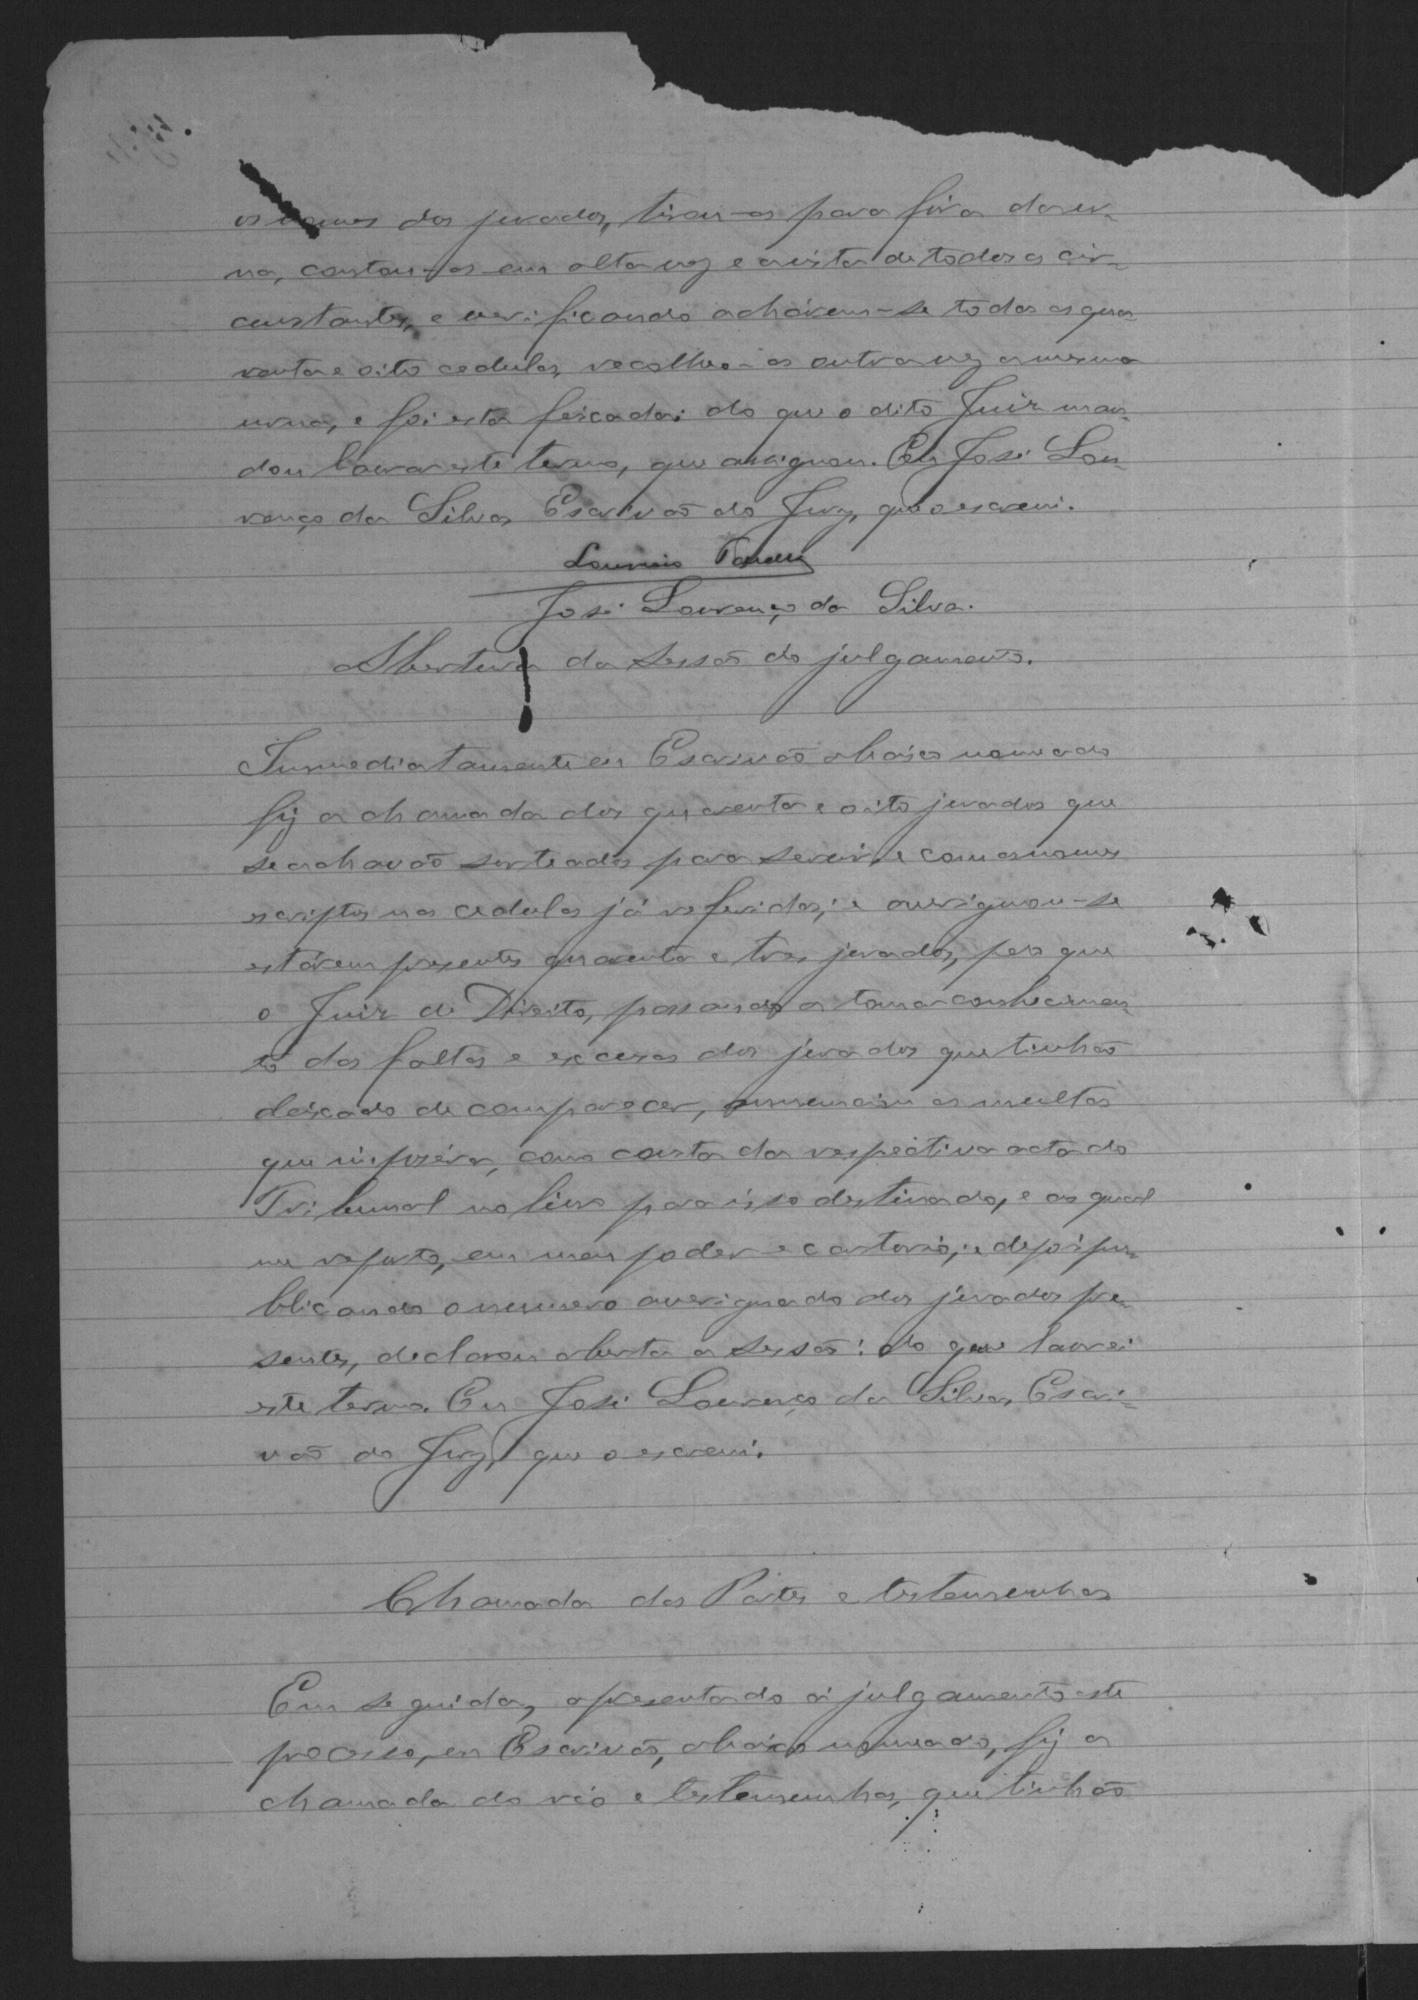 os nomes dos jurados, tirou-as para fóra da ur-
na, contou-as em alta voz e á vista de todos os cir-
cunstantes, e verificando acharem-se todas as qua-
renta e oito cedulas, recolheu-as outra vez a mesma
urna, e foi esta feixada; do que o dito Juiz man-
dou lavrar este termo, que assignou. Eu José Lou-
renço da Silva, Escrivão do Jury, que o escrevi.
José Lourenço da Silva.
Abertura da Sessão do julgamento.
Immediatamente eu Escrivão abaixo nomeado
fiz a chamada dos quarenta e oito jurados que
se achavão sorteados para servir, e com os nomes
escriptos nas cedulas já referidas; e averiguou-se
estárem presentes quarenta e tres jurados, pelo que
o Juiz de Direito, passando a tomar conhecimen-
to das faltas e excusas dos jurados que tinhão
deixado de comparecer, annunciou as multas
que impozéra, como consta da respectiva acta do
Tribunal no livro para isso destinado, e ao qual
me reporto, em meu poder e cartorio; e depois pu-
blicando o numero averiguado dos jurados pre-
sentes, declarou aberta a sessão: do que lavrei
este termo. Eu José Lourenço da Silva, Escri-
vão do Jury, que o escrevi.
Chamada das Partes e testemunhas
Em seguida, apresentado á julgamento este
processo, eu Escrivão, abaixo nomeado, fiz a
chamada do réo e testemunhas, que tinhão